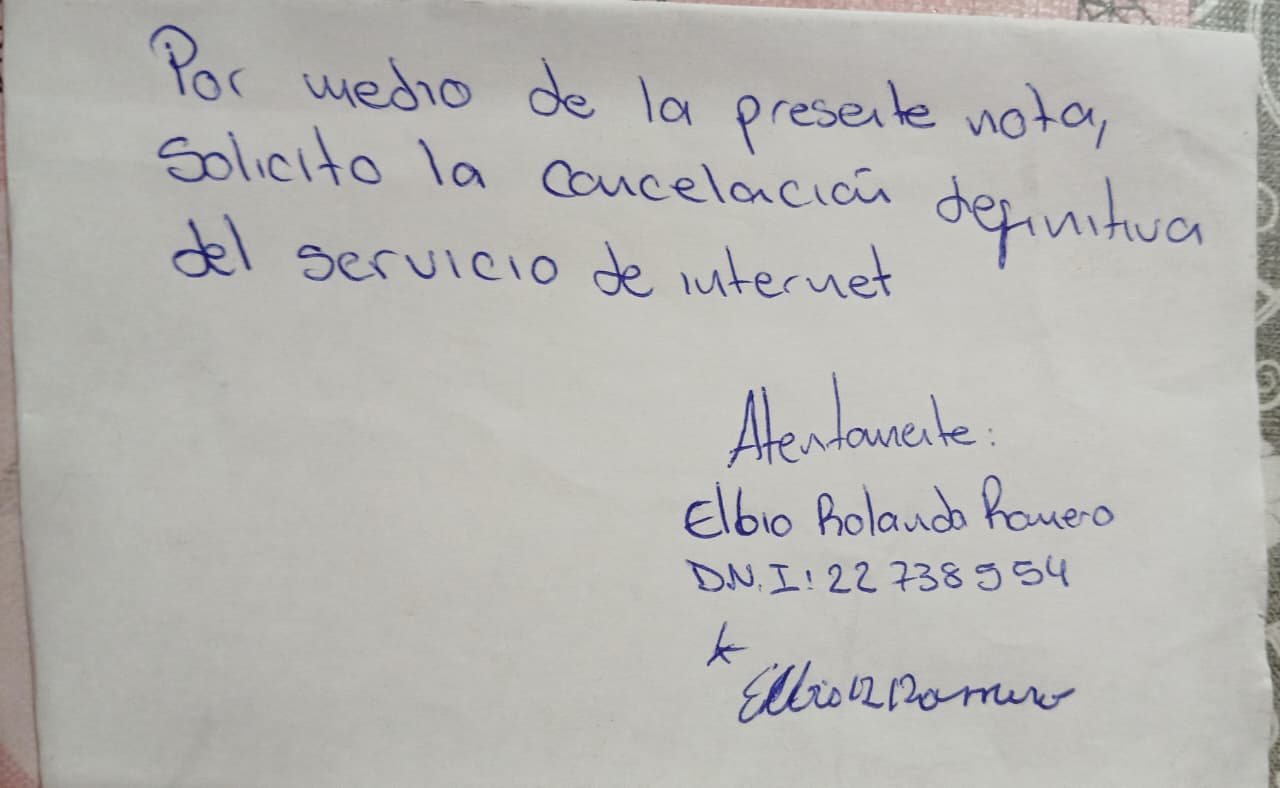 Por medio de la presente nota,
Solicito la cancelación definitiva
del servicio de internet
Atentamente:
Elbio Rolando Romero
D.N.I: 22 738 954
Elbio R Romero